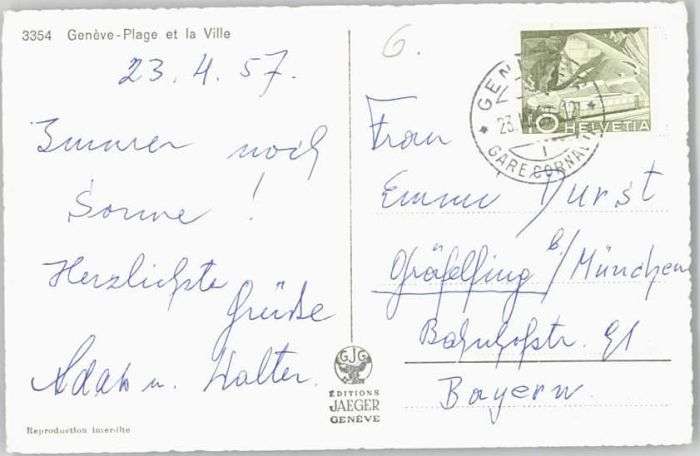 3354 Genève-Plage et la Ville
23.4.57.
Immer noch
Sonne!
Herzlichste
Grüße
u. Walter.
Reproduction interdite
GJG
ÉDITIONS
JAEGER
GENÈVE
6.
GENÈVE
GARE CORNAVIN
10 HELVETIA
Frau
Emmy Durst
Gräfelfing b/München
Bahnhofstr. 91
Bayern